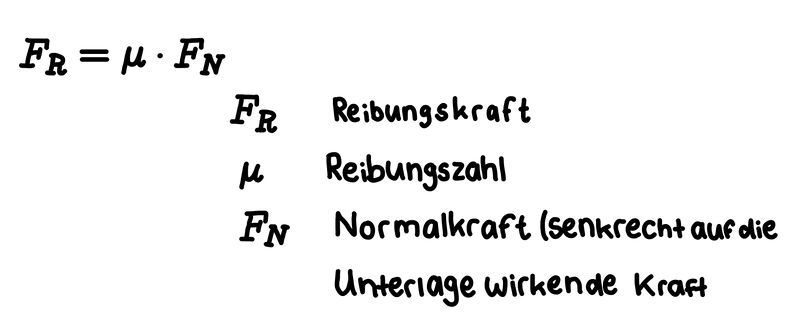 F_R = μ · F_N
F_R Reibungskraft
μ Reibungszahl
F_N Normalkraft (senkrecht auf die
Unterlage wirkende Kraft